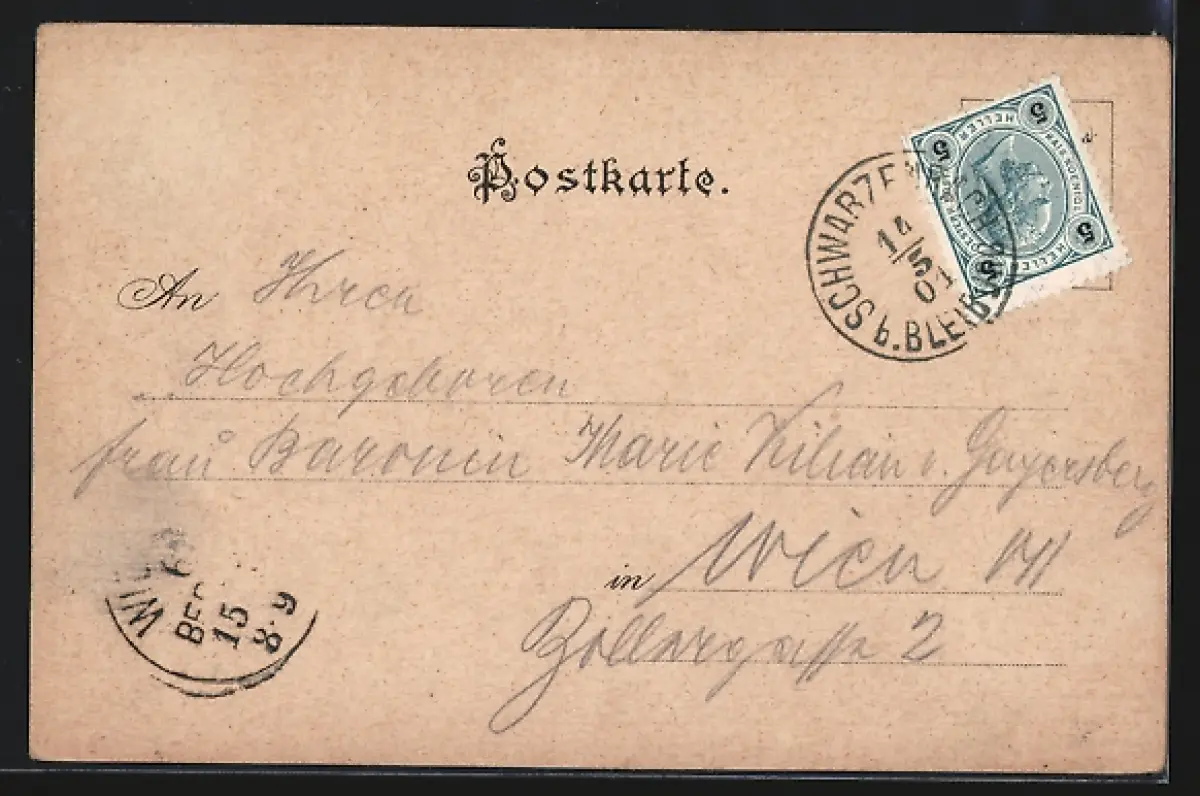 Postkarte.
5 HELLER 5
KAIS. KOENIGL.
5 HELLER 5
SCHWARZE
b. BLEIBURG
14/5 01
An Ihren
Hochgeboren
frau Baronin Marie Kilian v. Gayersberg
in Wien VII
Zollergasse 2
WI
BE
15
8·9